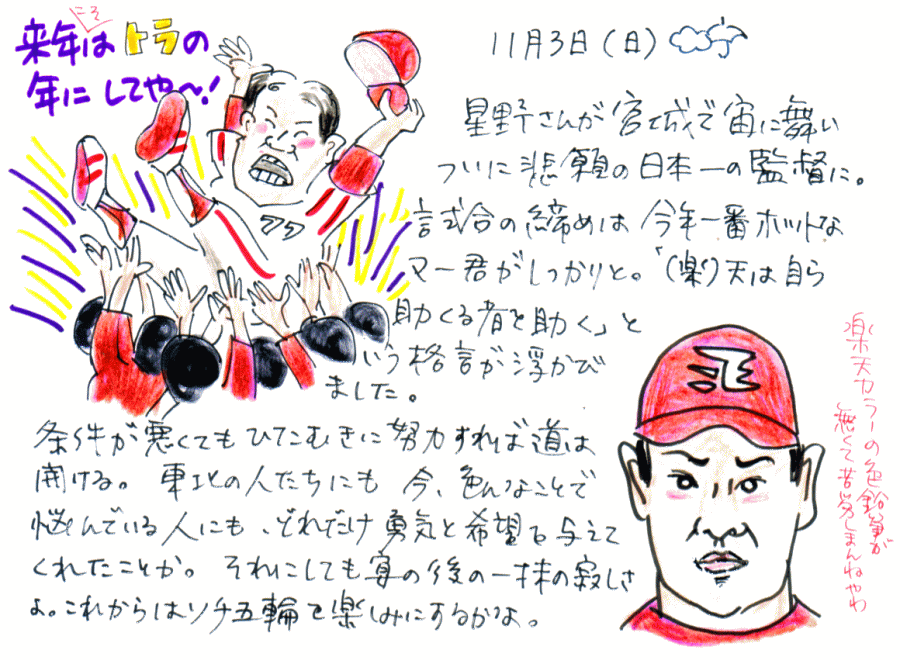 来年はトラの
こそ
年にしてや〜!
11月3日(日)
星野さんが宮城で宙に舞い
ついに悲願の日本一の監督に。
試合の締めは今年一番ホットな
マー君がしっかりと。「(楽)天は自ら
助くる者を助く」と
いう格言が浮かび
ました。
条件が悪くてもひたむきに努力すれば道は
開ける。東北の人たちにも今、色んなことで
悩んでいる人にも、どれだけ勇気と希望を与えて
くれたことか。それにしても宴の後の一抹の寂しさ
よ。これからはソチ五輪を楽しみにするかな。
77
楽天カラーの色鉛筆が
無くて苦労しまんねやわ